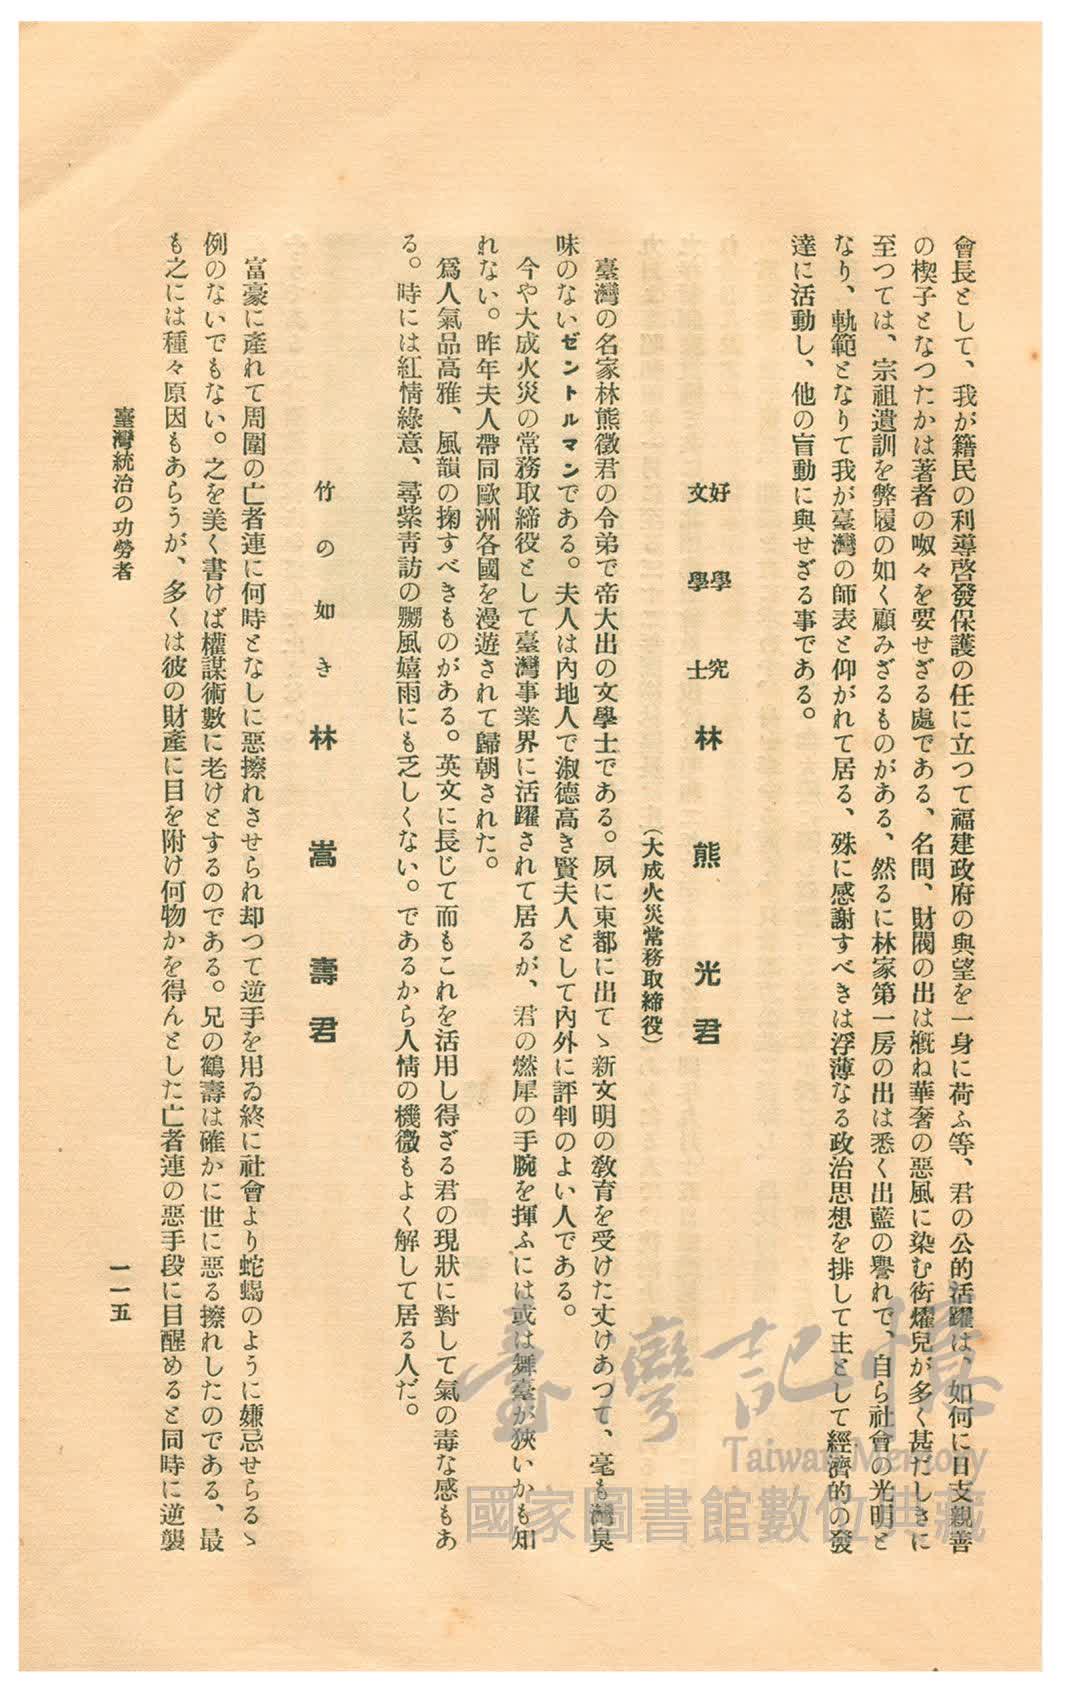 會長として、我が籍民の利導啓發保護の任に立つて福建政府の與望を一身に荷ふ等、君の公的活躍は、如何に日支親善
の楔子となつたかは著者の呶々を要せざる處である、名門、財閥の出は概ね華奢の惡風に染む衒燿兒が多く甚だしきに
至つては、宗祖遺訓を弊履の如く顧みざるものがある、然るに林家第一房の出は悉く出藍の譽れで、自ら社會の光明と
なり、軌範となりて我が臺灣の師表と仰がれて居る、殊に感謝すべきは浮薄なる政治思想を排して主として經濟的の發
達に活動し、他の盲動に與せざる事である。
好學究
文學士
林熊光君
（大成火災常務取締役）
臺灣の名家林熊徵君の令弟で帝大出の文學士である。夙に東都に出てゝ新文明の敎育を受けた丈けあつて、毫も灣臭
味のないゼントルマンである。夫人は內地人で淑德高き賢夫人として內外に評判のよい人である。
今や大成火災の常務取締役として臺灣事業界に活躍されて居るが、君の燃犀の手腕を揮ふには或は舞臺が狹いかも知
れない。昨年夫人帶同歐洲各國を漫遊されて歸朝された。
爲人氣品高雅、風韻の掬すべきものがある。英文に長じて而もこれを活用し得ざる君の現狀に對して氣の毒な感もあ
る。時には紅情綠意、尋紫靑訪の嬲風嬉雨にも乏しくない。であるから人情の機微もよく解して居る人だ。
竹の如き林嵩壽君
富豪に產れて周圍の亡者連に何時となしに惡擦れさせられ却つて逆手を用ゐ終に社會より蛇蝎のように嫌忌せらるゝ
例のないでもない。之を美く書けば權謀術數に老けとするのである。兄の鶴壽は確かに世に惡る擦れしたのである、最
も之には種々原因もあらうが、多くは彼の財產に目を附け何物かを得んとした亡者連の惡手段に目醒めると同時に逆襲
臺灣統治の功勞者
一一五
臺灣記憶
Taiwan Memory
國家圖書館數位典藏